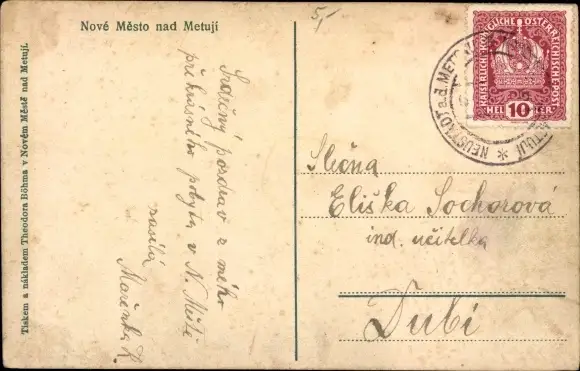 Nové Město nad Metují
5,-
Srdečný pozdrav z mého
překrásného pobytu v N. Městě
zasílá
Mařenka K.
Tiskem a nákladem Theodora Böhma v Novém Městě nad Metují.
KAISERLICHE KÖNIGLICHE ÖSTERREICHISCHE POST
10
HELLER
NEUSTADT a.d. METTAU
METUJÍ
Slečna
Eliška Sochorová
ind. učitelka
Dubí